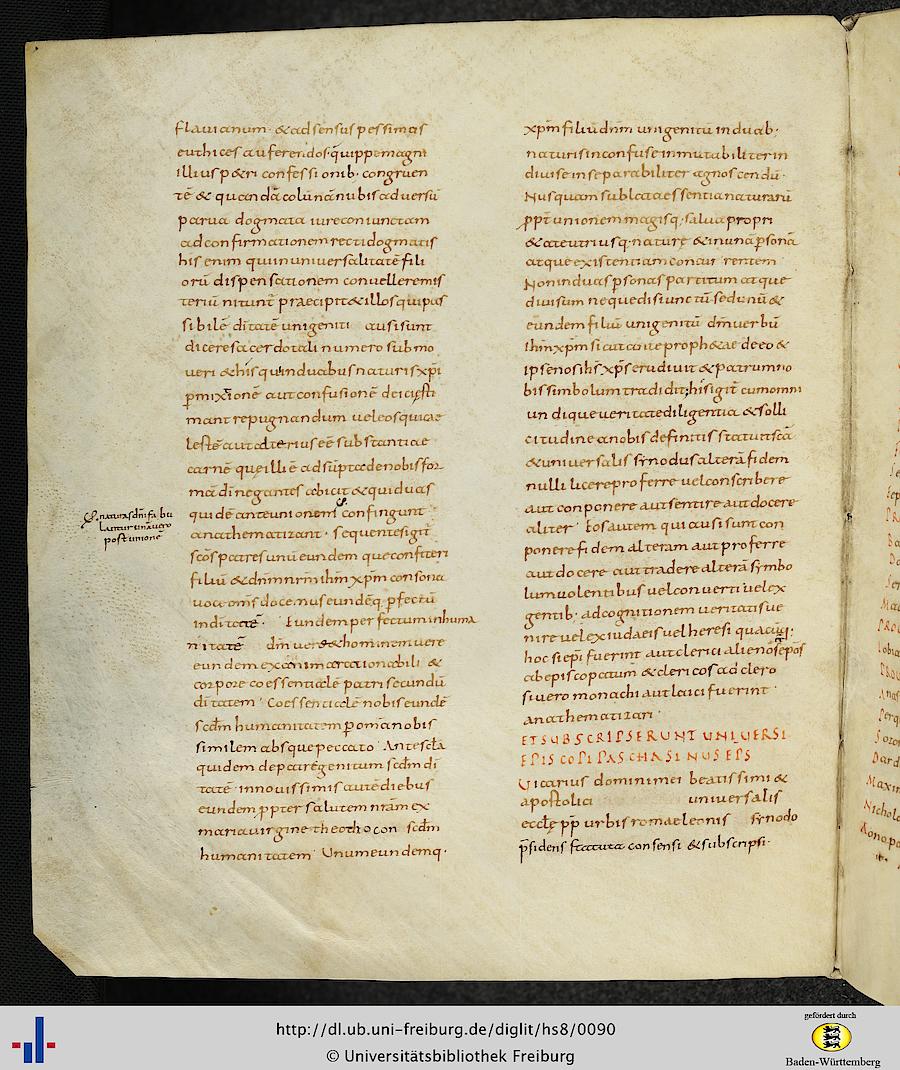 flauianum · & ad sensus pessimos
euthices auferendos · quippe magni
illius p&ri confessionib· congruen
tē & quandā colūnā nubis aduersū
parua dogmata iure coniunctam
ad confirmationem recti dogmatis
his enim qui in uniuersalitatē fili
orū dispensationem conuellere mis
teriū nitunt praecipit & illos qui pas
sibilē ditatē unigeniti ausi sunt
dicere sacerdotali numero submo
ueri & his qui in duabus naturis xp̄i
p̄mixtionē aut confusionē dei
mant repugnandum uel eos qui cae
lestē aut alterius eē substantiae
carnē que illi ē adsūpta de nobis for
mā di negantes abicit & qui duas
quidē ante unionem confingunt
anathematizant · sequentes igit
scōs patres unū eundemque confiteri
filiū & dnm nrm ihm xpm consona
uoce omīs docemus eundēq, pfectū
in ditatē · Eundem perfectum in huma
nitatē dm uere & hominem uere
eundem ex anima rationabili &
corpore coessentialē patri secundū
ditatem Coessentialē nobis eundē
scdm humanitatem p omia nobis
similem absque peccato Ante scla
quidem de patre genitum scdm di
tatē in nouissimis autē diebus
eundem ppter salutem nram ex
maria uirgine theothocon scdm
humanitatem Unum eundemq·
& naturas dni fabu
lantur unā uero
post unionē
xpm filiū dnm unigenitū in duab·
naturis inconfuse inmutabiliter in
diuise inseparabiliter agnoscendū ·
Nusquam sublata essentia naturarū
ppt unionem magisq, salua propri
&ate utriusq, naturę & in una psona
atque existentiam concurrentem
Non in duas psonas partitum atque
diuisum neque disiunctū sed unū &
eundem filiū unigenitū dm uerbū
ihm xpm sicut ante proph&ae de eo &
ipse nos ihs xps erudiuit & patrum no
bis simbolum tradidit, his igit cum omni
undique ueritate diligentia & solli
citudine a nobis definitis statuit scā
& uniuersalis synodus alterā fidem
nulli licere proferre uel conscribere
aut conponere aut sentire aut docere
aliter Eos autem qui ausi sunt con
ponere fidem alteram aut proferre
aut docere aut tradere alterā symbo
lum uolentibus uel conuerti uel ex
gentib· ad cognitionem ueritatis ue
nire uel ex iudaeis uel heresi quacūq;
hoc si epi fuerint aut clerici alienos epos
ab episcopatum & clericos ad clero
si uero monachi aut laici fuerint
anathematizari
ET SUBSCRIPSERUNT UNIUERSI
EPISCOPI PASCHASINUS EPS
Uicarius domini mei beatissimi &
apostolici uniuersalis
eccle pp urbis romae leonis synodo
psidens statuta consensi & subscripsi·
http://dl.ub.uni-freiburg.de/diglit/hs8/0090
© Universitätsbibliothek Freiburg
gefördert durch
Baden-Württemberg